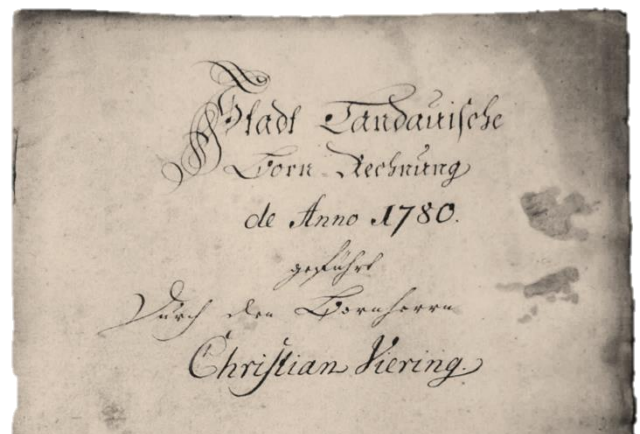 Stadt Landauische
Born Rechnung
de Anno 1780.
geführt
Durch den Bornherrn
Christian Viering.